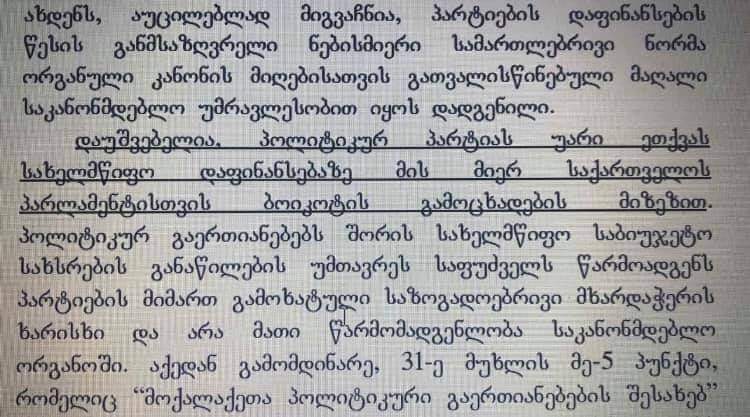 ახდენს, აუცილებლად მიგვაჩნია, პარტიების დაფინანსების
წესის განმსაზღვრელი ნებისმიერი სამართლებრივი ნორმა
ორგანული კანონის მიღებისათვის გათვალისწინებული მაღალი
საკანონმდებლო უმრავლესობით იყოს დადგენილი.
დაუშვებელია, პოლიტიკურ პარტიას უარი ეთქვას
სახელმწიფო დაფინანსებაზე მის მიერ საქართველოს
პარლამენტისთვის ბოიკოტის გამოცხადების მიზეზით.
პოლიტიკურ გაერთიანებებს შორის სახელმწიფო საბიუჯეტო
სახსრების განაწილების უმთავრეს საფუძველს წარმოადგენს
პარტიების მიმართ გამოხატული საზოგადოებრივი მხარდაჭერის
ხარისხი და არა მათი წარმომადგენლობა საკანონმდებლო
ორგანოში. აქედან გამომდინარე, 31-ე მუხლის მე-5 პუნქტი,
რომელიც “მოქალაქეთა პოლიტიკური გაერთიანებების შესახებ”